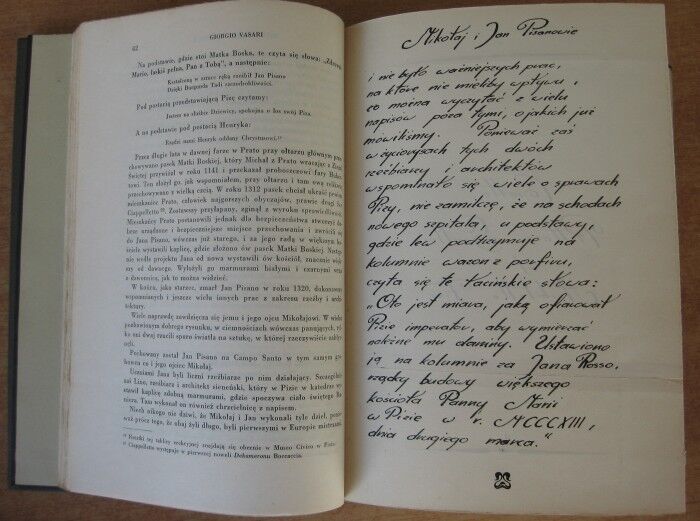 62
GIORGIO VASARI
Na podstawie, gdzie stoi Matka Boska, te czyta się słowa: „Zdrowaś
Mario, łaskiś pełna, Pan z Tobą", a następnie:
Kształconą w sztuce ręką rzeźbił Jan Pisano
Dzięki Burgundo Tadi
Pod postacią przedstawiającą Pizę czytamy:
Jestem na służbie Dziewicy, spokojna o los swój Piza.
A na podstawie pod postacią Henryka:
Rządzi mami Henryk oddany Chrystusowi.¹⁹
Przez długie lata w dawnej farze w Prato przy ołtarzu głównym prze-
chowywano pasek Matki Boskiej, który Michał z Prato wracając z Ziemi
Świętej przywiózł w roku 1141 i przekazał proboszczowi fary Uber-
towi. Ten złożył go, jak wspomniałem, przy ołtarzu i tam ową relikwię
przechowywano z wielką czcią. W roku 1312 pasek chciał ukraść pewien
mieszkaniec Prato, człowiek najgorszych obyczajów, prawie drugi Ser
Ciappelletto²⁰. Zostawszy przyłapany, zginął z wyroku sprawiedliwości.
Mieszkańcy Prato postanowili jednak dla bezpieczeństwa stworzyć do-
brze urządzone i bezpieczniejsze miejsce przechowania i zwrócili się
do Jana Pisano, wówczas już starego, i za jego radą w większym ko-
ściele wystawili kaplicę, gdzie złożono ów pasek Matki Boskiej. Nastę-
pnie wedle projektu Jana od nowa wystawili ów kościół, znacznie większy
niż od dawnego. Wyłożyli go marmurami białymi i czarnymi wraz
z dzwonnicą, jak to można widzieć.
W końcu, jako starzec, zmarł Jan Pisano w roku 1320, dokonawszy
wspomnianych i jeszcze wielu innych prac z zakresu rzeźby i archi-
tektury.
Wiele naprawdę zawdzięcza się jemu i jego ojcu Mikołajowi. W wieku
pozbawionym dobrego rysunku, w ciemnościach wówczas panujących, rzu-
cili oni dwaj rzucili sporo światła na sztukę, w której rzeczywiście
Pochowany został Jan Pisano na Campo Santo w tym samym gro-
bowcu co i jego ojciec Mikołaj.
Uczniami Jana byli liczni rzeźbiarze po nim działający. Szczególnie
zaś Lino, rzeźbiarz i architekt sieneński, który w Pizie w katedrze wy-
stawił kaplicę zdobną marmurami, gdzie spoczywa ciało świętego Ra-
niera. Tam wykonał on również chrzcielnicę z napisem.
Niech nikogo nie dziwi, że Mikołaj i Jan wykonali tyle dzieł, ponie-
waż prócz tego, że obaj żyli długo, byli pierwszymi w Europie mistrzami,
¹⁹ Resztki tej tablicy erekcyjnej znajdują się obecnie w Museo Civico w Pizie.
²⁰ Ciappelletto występuje w pierwszej noweli Dekameronu Boccaccia.
Mikołaj i Jan Pisanowie
i nie było ważniejszych prac,
na które nie mieliby wpływu,
co można wyczytać z wielu
napisów poza tymi, o jakich już
mówiliśmy. Ponieważ zaś
w życiorysach tych dwóch
rzeźbiarzy i architektów
wspominało się wiele o sprawach
Pizy, nie zamilczę, że na schodach
nowego szpitala, u podstawy,
gdzie lew podtrzymuje na
kolumnie wazon z porfiru,
czyta się te łacińskie słowa:
„Oto jest miara, jaką ofiarował
Pizie imperator, aby wymierzać
należne mu daniny. Ustawiono
ją na kolumnie za Jana Rosso,
rządcy budowy większego
kościoła Panny Marii
w Pizie w r. MCCCXIII,
dnia drugiego marca."